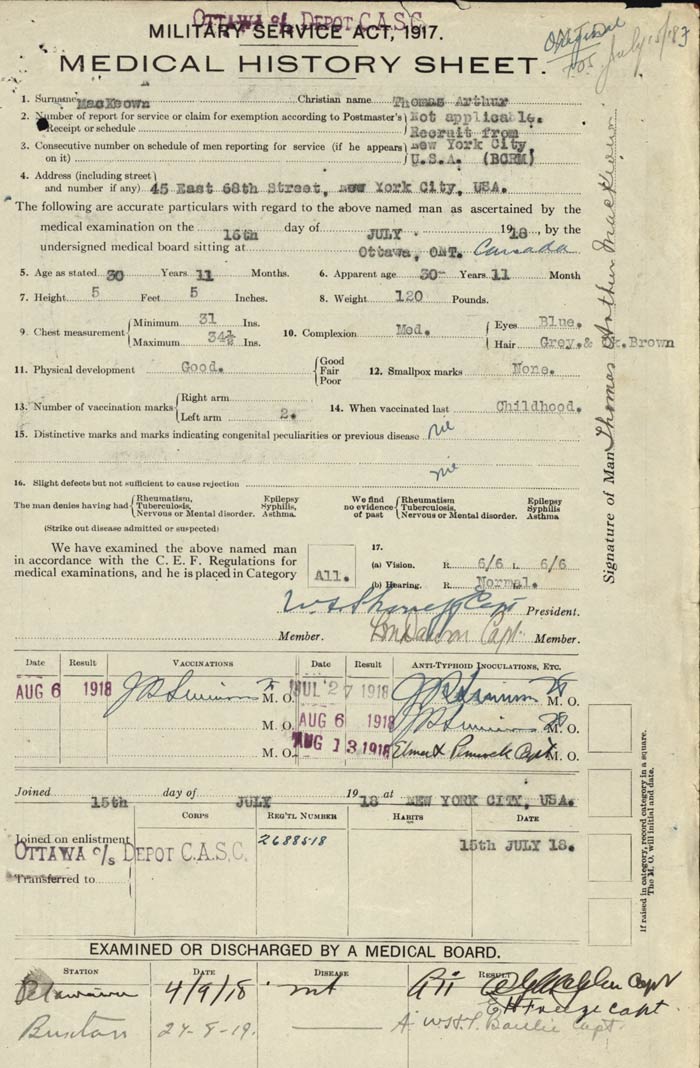 OTTAWA o/s DEPOT C.A.S.C.
MILITARY SERVICE ACT, 1917.
MEDICAL HISTORY SHEET.
Original
July 15/18
1. Surname MacKeown Christian name Thomas Arthur
2. Number of report for service or claim for exemption according to Postmaster's Receipt or schedule Not applicable. Recruit from
3. Consecutive number on schedule of men reporting for service (if he appears on it) New York City, U.S.A. (BCRM)
4. Address (including street and number if any) 45 East 68th Street, New York City, USA.
The following are accurate particulars with regard to the above named man as ascertained by the
medical examination on the 15th day of JULY 1918, by the
undersigned medical board sitting at Ottawa, ONT. Canada
5. Age as stated 30 Years 11 Months. 6. Apparent age 30 Years 11 Month
7. Height 5 Feet 5 Inches. 8. Weight 120 Pounds.
9. Chest measurement Minimum 31 Ins. Maximum 34½ Ins. 10. Complexion Med. Eyes Blue. Hair Grey & Dk. Brown
11. Physical development Good. Good Fair Poor 12. Smallpox marks None.
13. Number of vaccination marks Right arm Left arm 2. 14. When vaccinated last Childhood.
15. Distinctive marks and marks indicating congenital peculiarities or previous disease nil
nil
16. Slight defects but not sufficient to cause rejection
The man denies having had Rheumatism, Tuberculosis, Nervous or Mental disorder. Epilepsy Syphilis, Asthma We find no evidence of past Rheumatism, Tuberculosis, Nervous or Mental disorder. Epilepsy Syphilis Asthma
(Strike out disease admitted or suspected)
We have examined the above named man
in accordance with the C. E. F. Regulations for
medical examinations, and he is placed in Category A11.
17.
(a) Vision. R. 6/6 L. 6/6
(b) Hearing. R. Normal.
Capt President.
Member. Capt. Member.
Signature of Man Thomas Arthur MacKeown
Date Result VACCINATIONS Date Result ANTI-TYPHOID INOCULATIONS, ETC.
AUG 6 1918 M. O. JUL 27 1918 M. O.
M. O. AUG 6 1918 M. O.
M. O. AUG 13 1918 Capt M. O.
If raised in category, record category in a square.
The M. O. will initial and date.
Joined 15th day of JULY 1918 at NEW YORK CITY, USA.
CORPS REG'TL NUMBER HABITS DATE
Joined on enlistment 2688518 15th JULY 18.
OTTAWA o/s DEPOT C.A.S.C.
Transferred to
EXAMINED OR DISCHARGED BY A MEDICAL BOARD.
STATION DATE DISEASE RESULT
Petawawa 4/9/18 Aii Capt
Capt
Buxton A Capt.